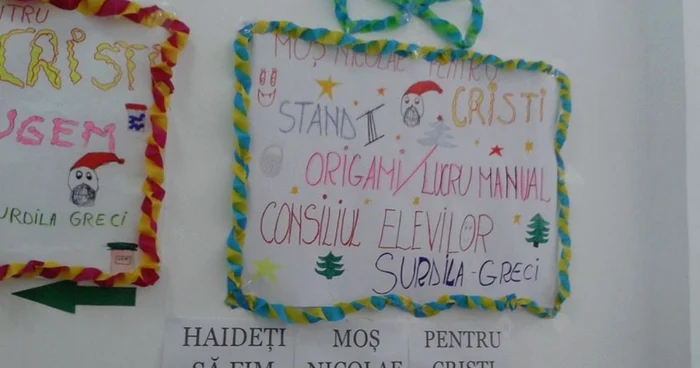 CRISTI
UGEM
SURDILA GRECI
MOȘ NICOLAE PENTRU
CRISTI
STAND II
ORIGAMI/LUCRU MANUAL
CONSILIUL ELEVILOR
SURDILA-GRECI
HAIDEȚI
SĂ FIM
MOȘ
NICOLAE
PENTRU
CRISTI